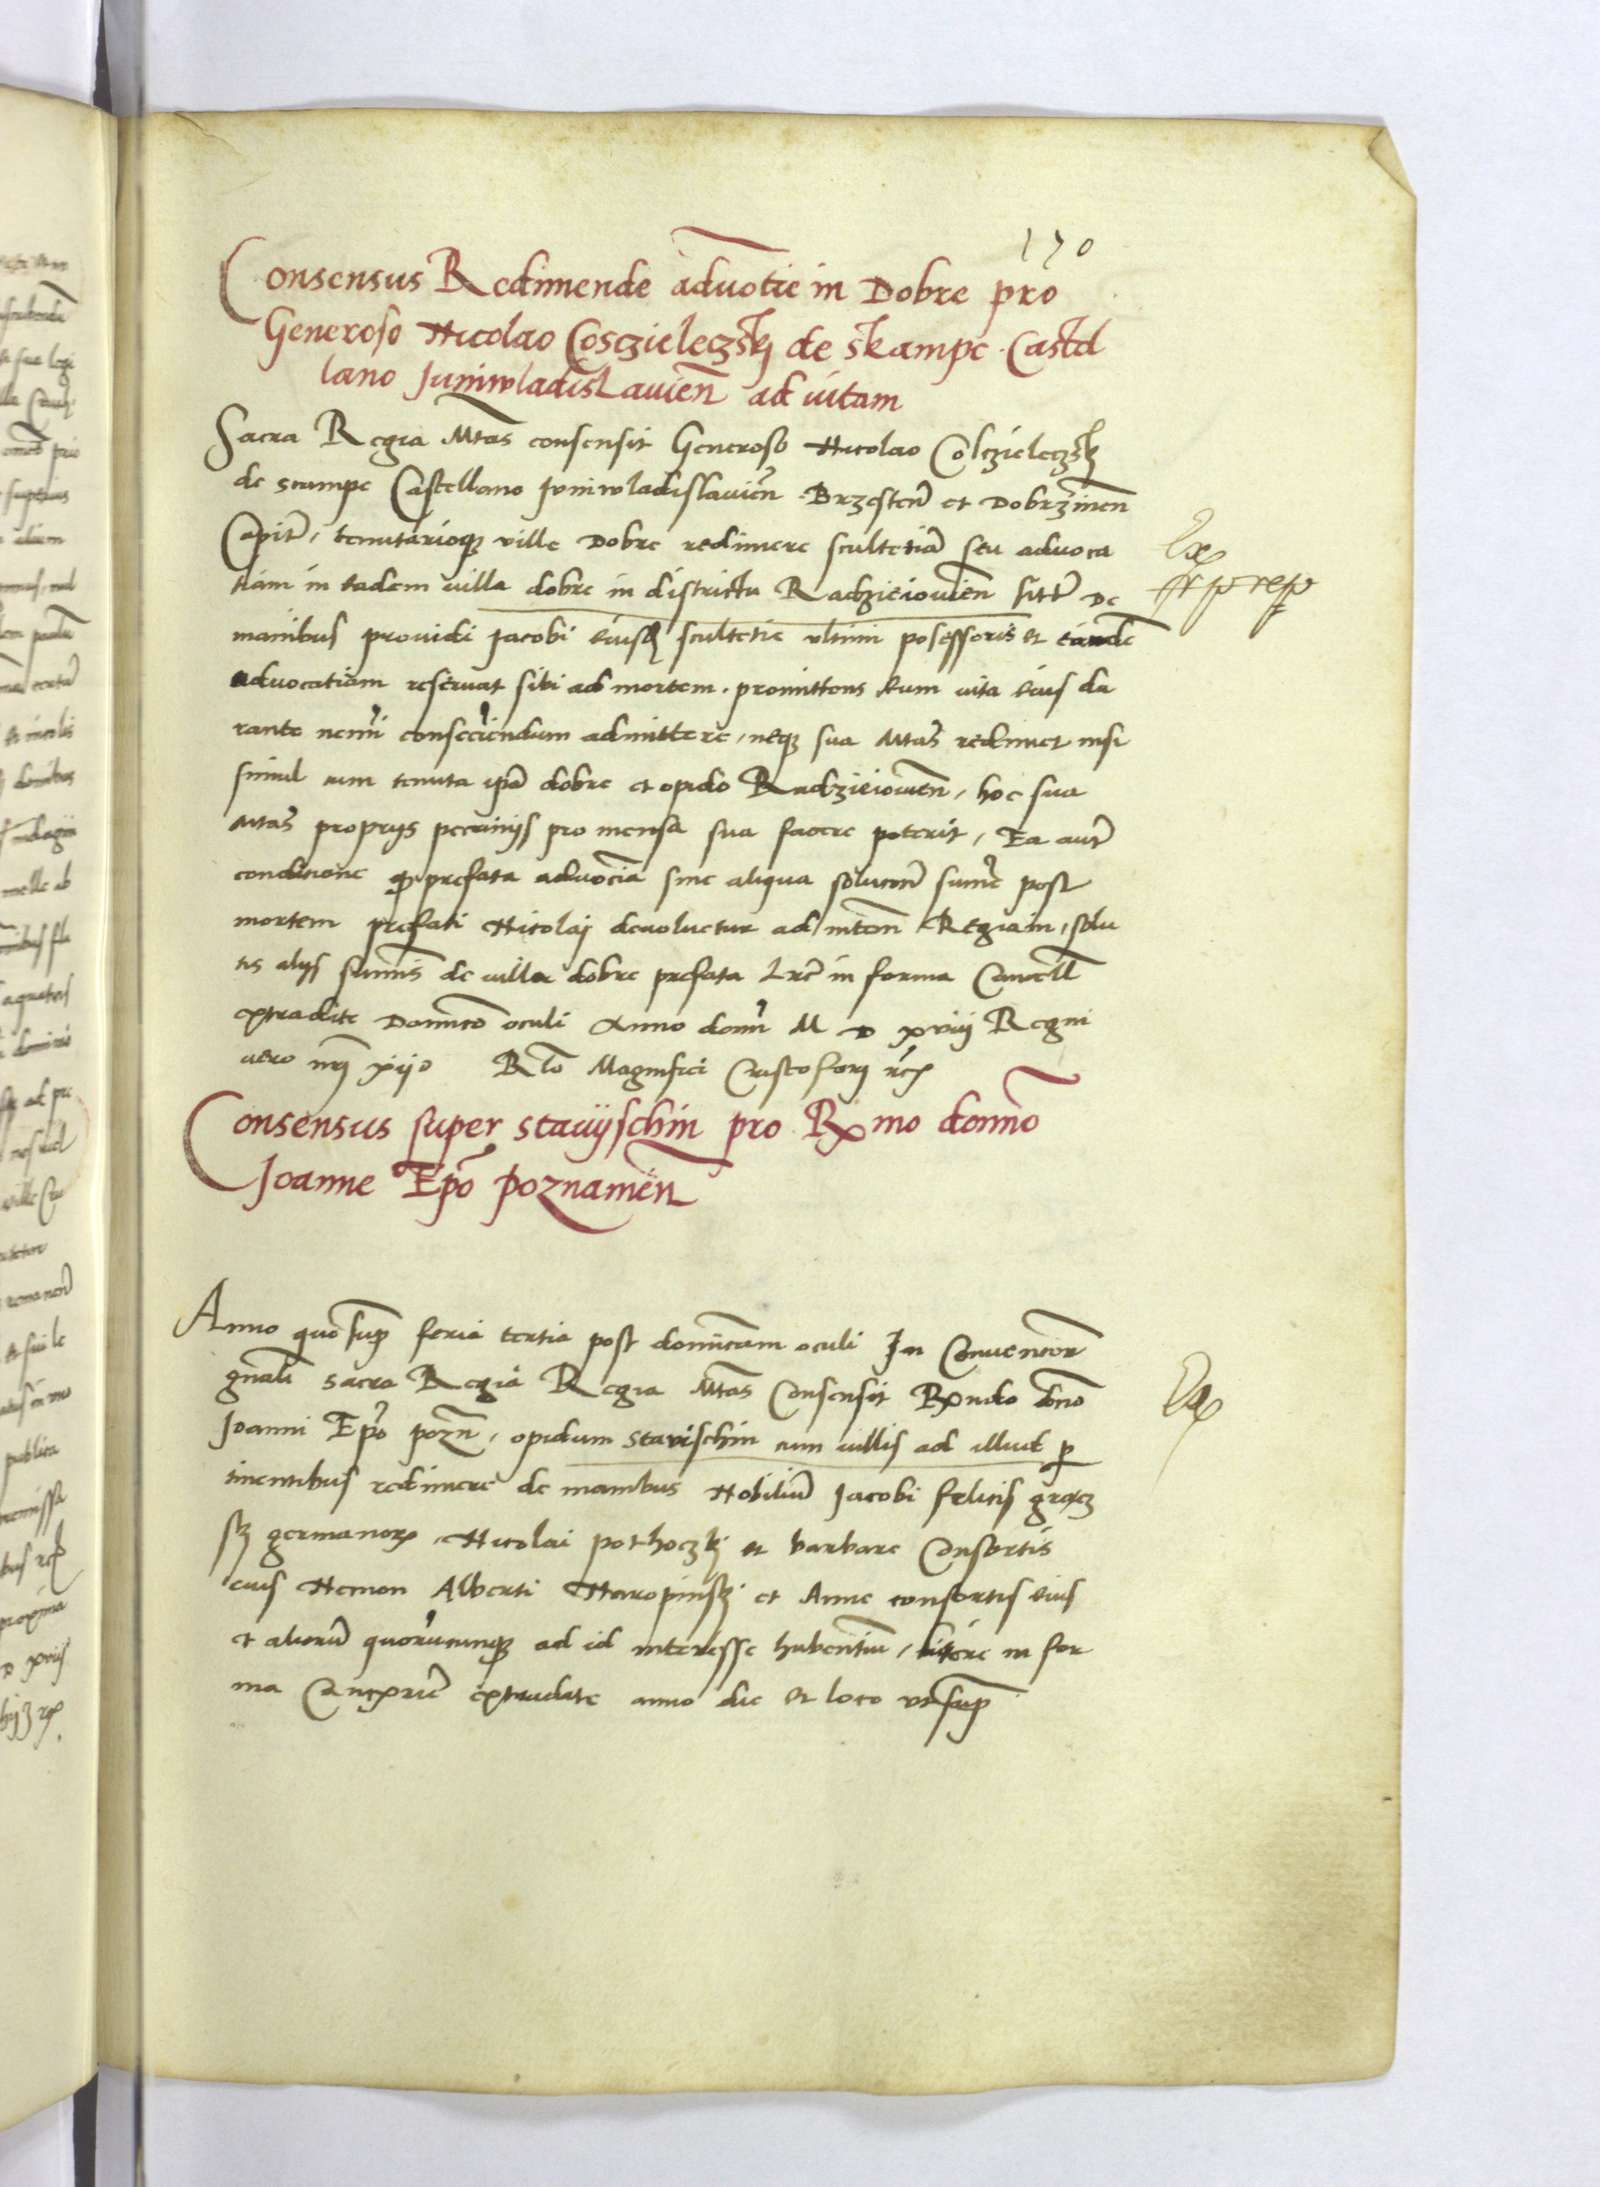 170
Consensus Redimende advotie in Dobre pro
Generoso Nicolao Cosczieleczskj de skampe Castel
lano Juniwladislavien ad vitam
Sacra Regia Mtas consensit Generoso Nicolao Coleczieleczskj
de scampe Castellano Juniwladislavien Brzesten et Dobrzinen
Capit, tenutarioq ville Dobre redimere scultetiam seu advoca
Ex
tiam in eadem villa dobre in districtu Radzieiovien sit De
manibus providi Jacobi eiusd scultetie ultimi posessoris et eande
advocatiam reservat sibi ad mortem. promittens eum vita eius du
rante nemini admittere, neq sua Mtas redimet nisi
simul cum tenuta ipa dobre et opido Radzieiovien, hoc sua
Mtas proprijs pecunijs pro mensa sua facere poterit, Ea aut
conditione q prefata advocia sine aliqua solucone sume post
mortem prefati Nicolaj devoluetur ad mtem Regiam, solu
tis alijs sumis de villa dobre prefata Lre in forma Cancell
extradite Domico oculi Anno domi M D xviij Regni
vero nri xijo Rlo Magnifici Cristoforj rcz
Consensus super stavijschin pro Rmo domno
Joanne Epo Poznamen
Anno quo supra feria tertia post domicam oculi In Convencone
gnali sacra Regia Regia Mtas Consensit Rndo dno
Ex
Joanni Epo pozn, opidum stavischin cum villis ad illud per
tinentibus redimere de manibus Nobilium Jacobi felicis
skj germanor, Nicolai pothoczkj et barbare Consortis
eius Necnon Alberti et Anne consortis eius
et aliorum quorucunq ad id interesse habentium, littere in for
ma Cancrie extradate anno die et loco ut sup